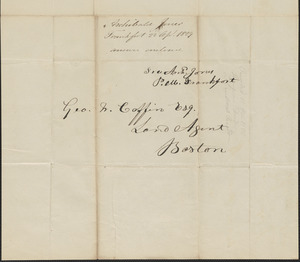 Archibald Jones
Frankfort 22 Ap. 1839
Jones
P.M. Frankfort
Geo. W. Coffin Esq.
Land Agent
Boston